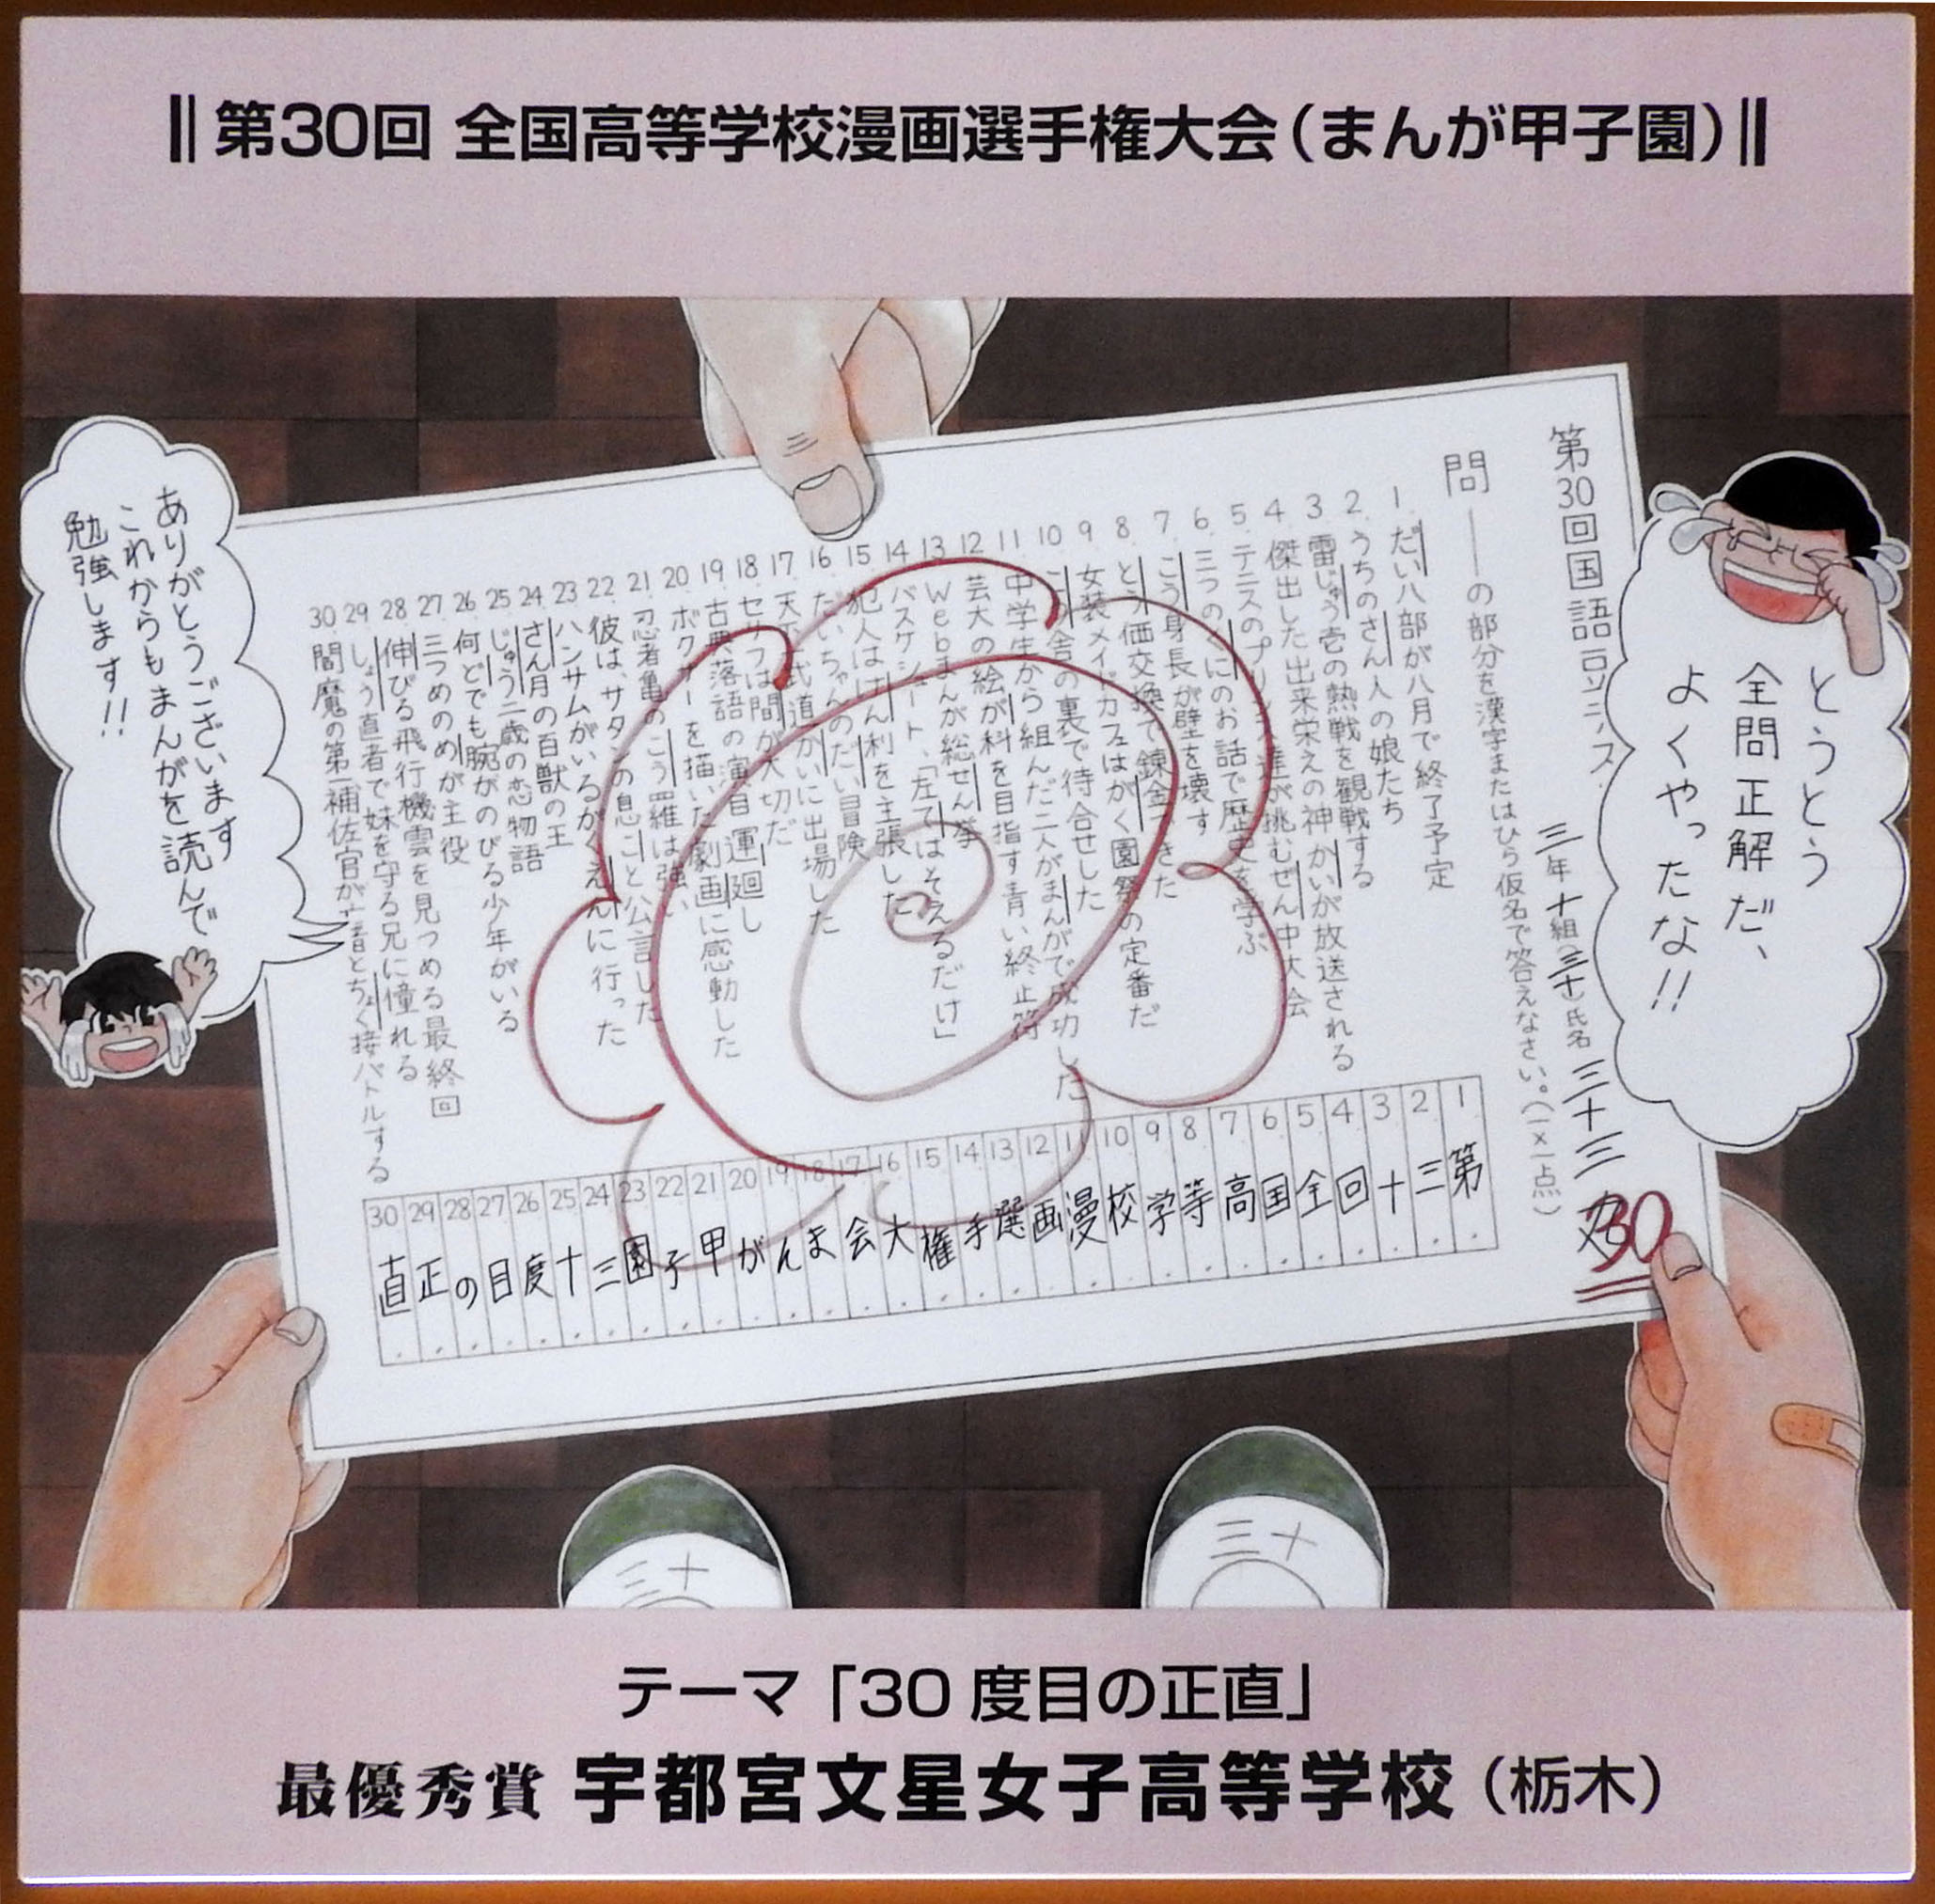 第30回 全国高等学校漫画選手権大会（まんが甲子園）
とうとう
全問正解だ、
よくやったな!!
第30回国語豆テスト
三年十組(三十)氏名 三十三
30
問 ――の部分を漢字またはひら仮名で答えなさい。(一×一点)
1 だい八部が八月で終了予定
2 うちのさん人の娘たち
3 雷じゅう壱の熱戦を観戦する
4 傑出した出来栄えの神かいが放送される
5 テニスのプリンス達が挑むぜん中大会
6 三つのくにのお話で歴史を学ぶ
7 こう身長が壁を壊す
8 とう価交換で錬金できた
9 女装メイドカフェはがく園祭の定番だ
10 こう舎の裏で待合せした
11 中学生から組んだ二人がまんがで成功した
12 芸大の絵が科を目指す青い終止符
13 Webまんが総せん挙
14 バスケシュート、「左てはそえるだけ」
15 犯人はけん利を主張した
16 だいちゃんのだい冒険
17 天下一武道かいに出場した
18 セリフは間が大切だ
19 古典落語の演目 運廻し
20 ボクサーを描いた劇画に感動した
21 忍者亀のこう羅は強い
22 彼は、サタンの息こと公言した
23 ハンサムがいるがくえんに行った
24 さん月の百獣の王
25 じゅう二歳の恋物語
26 何どでも腕がのびる少年がいる
27 三つめのめが主役
28 伸びる飛行機雲を見つめる最終回
29 しょう直者で妹を守る兄に憧れる
30 閻魔の第一補佐官が
とちょく接バトルする
1 2 3 4 5 6 7 8 9 10 11 12 13 14 15 16 17 18 19 20 21 22 23 24 25 26 27 28 29 30
第三十回全国高等学校漫画選手権大会まんが甲子園三十度目の正直
ありがとうございます
これからもまんがを読んで
勉強します!!
三十
三十
テーマ「30度目の正直」
最優秀賞 宇都宮文星女子高等学校（栃木）